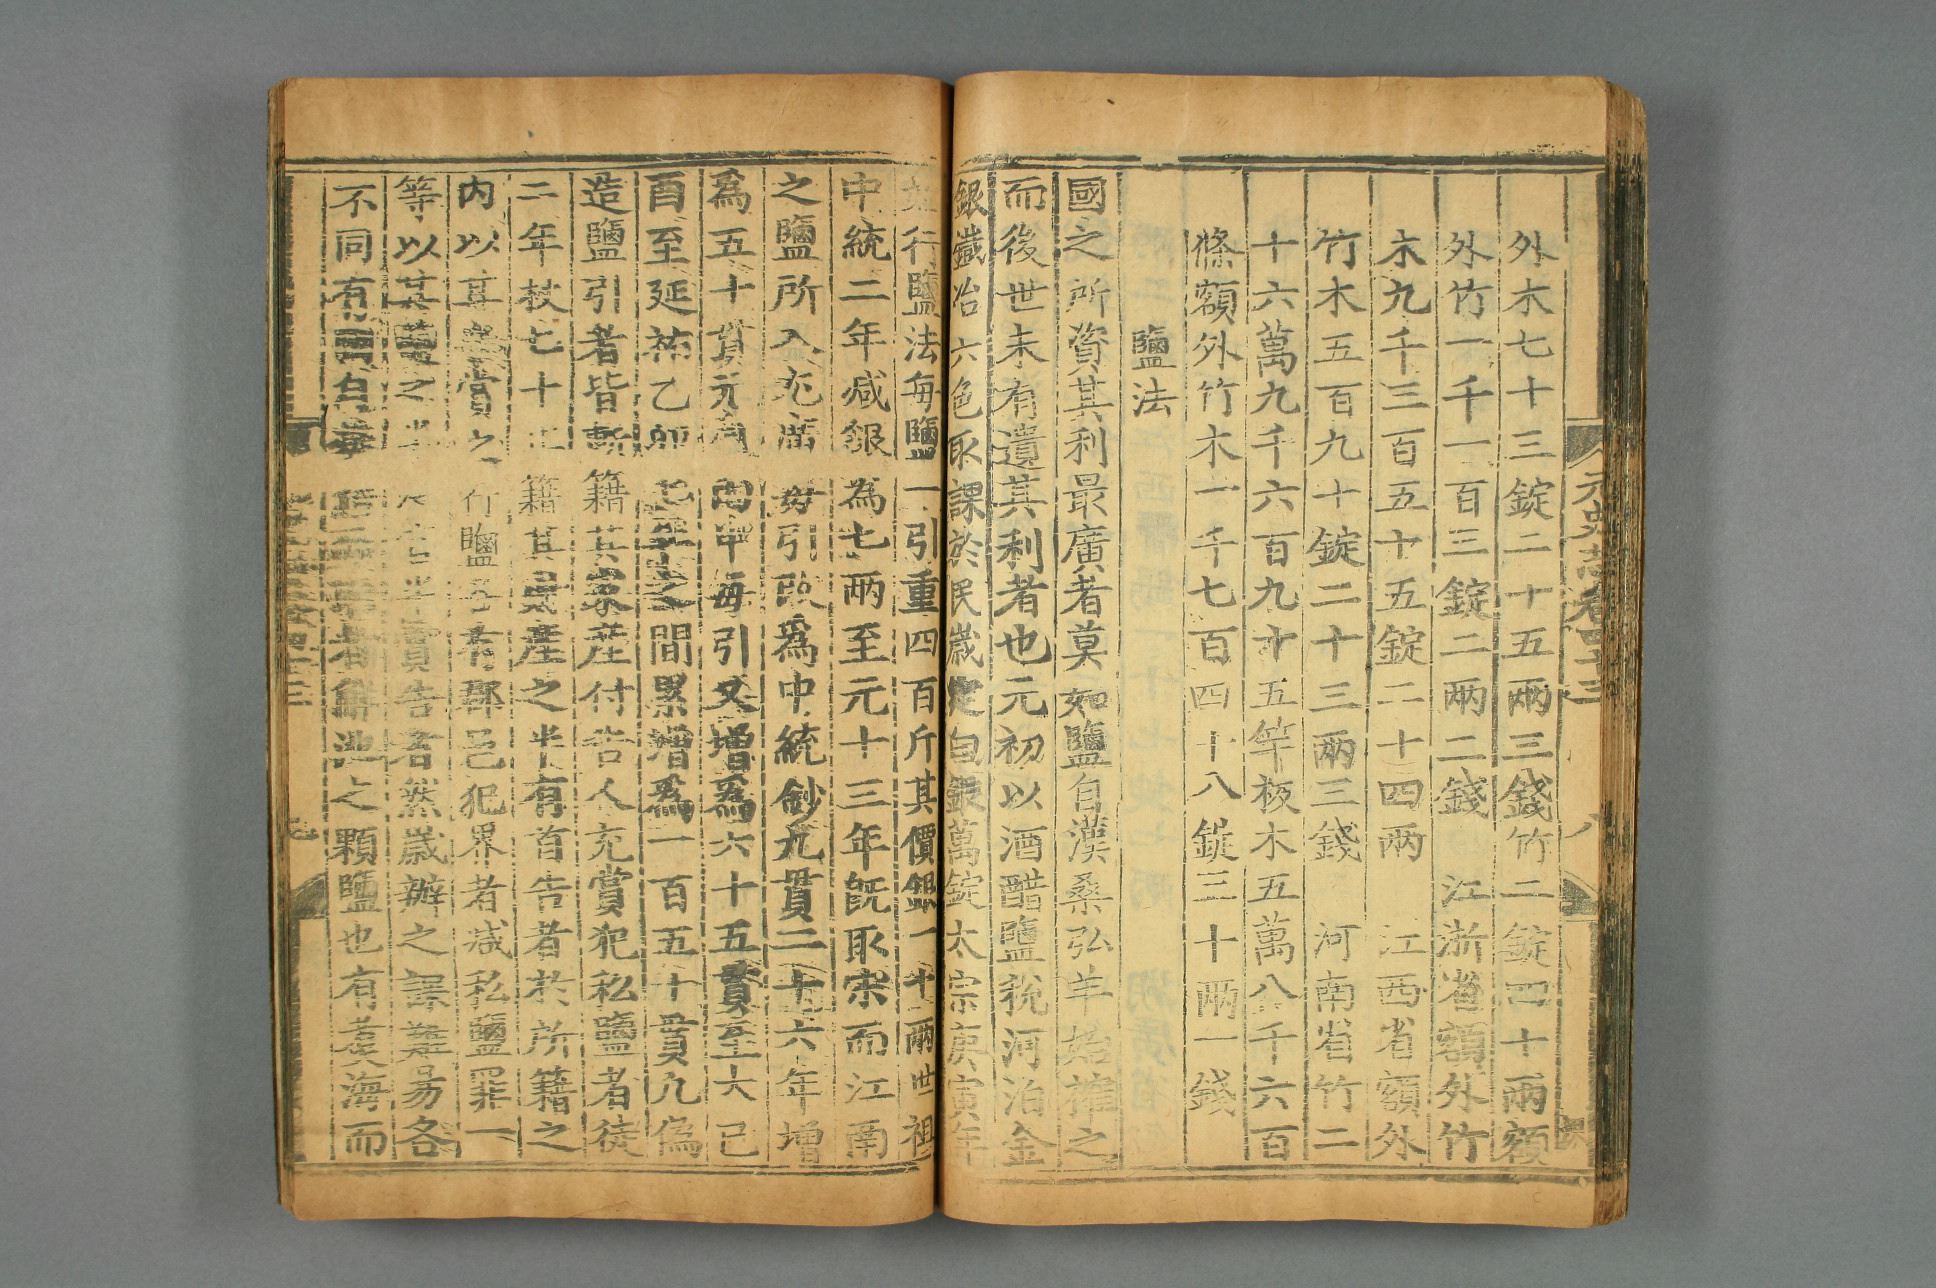 元史志卷四十三
八
外木七十三錠二十五兩三錢竹二錠四十兩額
外竹一千一百三錠二兩二錢 江浙省額外竹
木九千三百五十五錠二十四兩 江西省額外
竹木五百九十錠二十三兩三錢 河南省竹二
十六萬九千六百九十五竿板木五萬八千六百
條額外竹木一千七百四十八錠三十兩一錢
鹽法
國之所資其利最廣者莫如鹽自漢桑弘羊始榷之
而後世未有遺其利者也元初以酒醋鹽稅河泊金
銀鐵冶六色取課於民歲定白銀萬錠太宗庚寅年
行鹽法每鹽一引重四百斤其價銀一十兩世祖
中統二年减銀為七兩至元十三年既取宋而江南
之鹽所入尤廣每引改爲中統鈔九貫二十六年增
爲五十貫元貞丙申每引又增爲六十五貫至大己
酉至延祐乙卯七年之間累增爲一百五十貫凡偽
造鹽引者皆斬籍其家産付告人充賞犯私鹽者徒
二年杖七十止籍其財産之半有首告者於所籍之
内以其半賞之行鹽各有郡邑犯界者减私鹽罪一
等以其鹽之半 半賞告者然歲辦之課難易各
不同有因自凝 之顆鹽也有煑海而